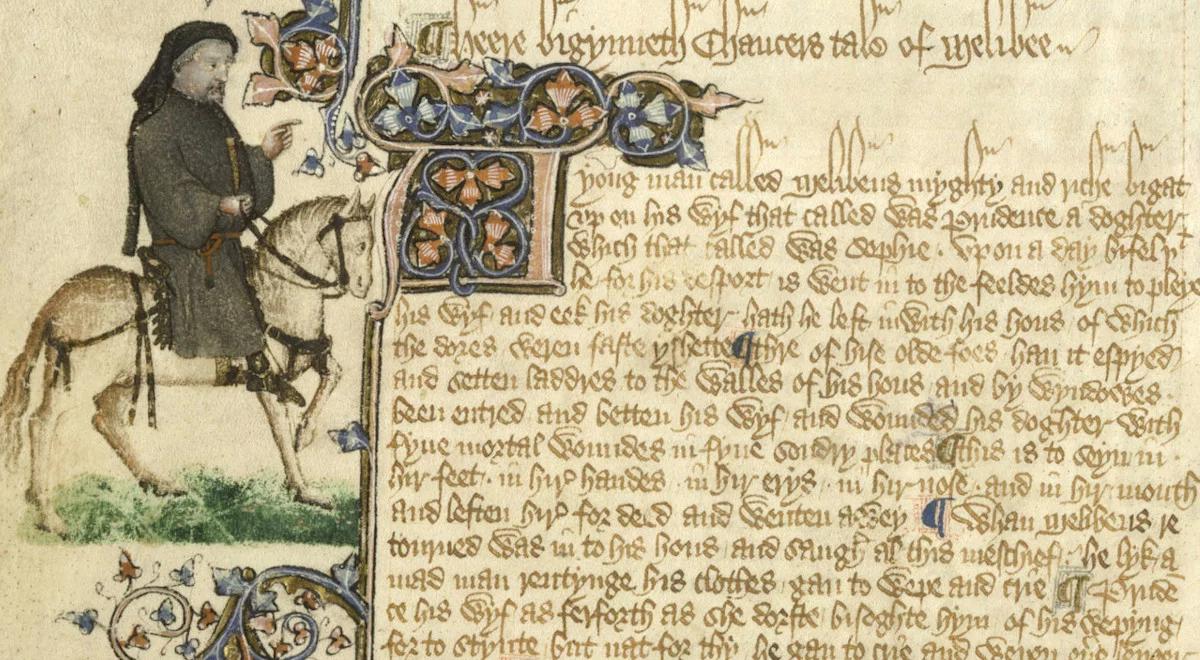 Heere bigynneth Chaucers tale of Melibee
A yong man called Melibeus myghty and riche bigat
vp on his wyf that called was Prudence a doghter
which that called was Sophie . vpon a day bifel þt
he for his desport is went in to the feeldes hym to pleye
his wyf and eek his doghter hath he left inwith his hous / of which
the dores weren faste yshette ¶ Thre of hise olde foes han it espyed
and setten laddres to the walles of his hous and by wyndowes
been entred and betten his wyf / and wounded his doghter with
fyue mortal woundes in fyue sondry places ¶ This is to seyn in
hir feet . in hir handes . in hir erys . in hir nose . and in hir mouth
and leften hir for deed and wenten awey ¶ Whan Melibeus re
tourned was in to his hous and saugh al this meschief / he lyk a
mad man rentynge his clothes / gan to wepe and crie ¶ Pruden
ce his wyf as ferforth as she dorste / bisoghte hym of his wepyng
for to stynte but nat for thy he gan to crie and wepen euere lenger